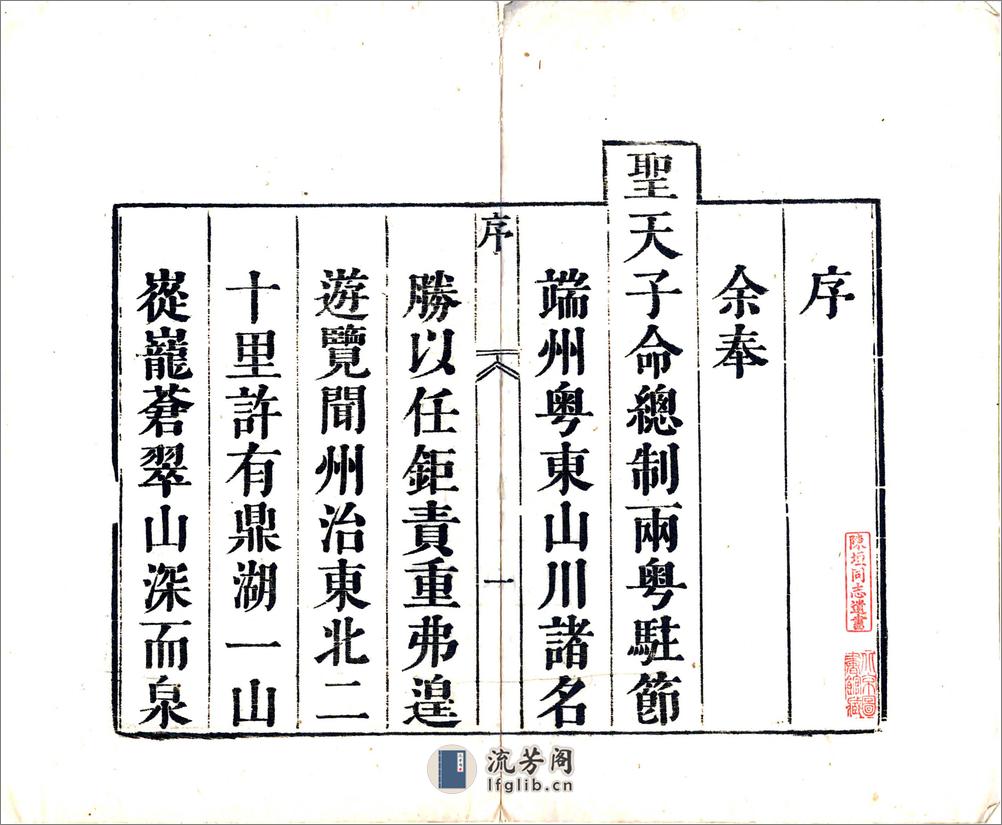 序
余奉
聖天子命總制兩粤駐節
端州粤東山川諸名
序
一
勝以任鉅責重弗遑
遊覽聞州治東北二
十里許有鼎湖一山
嵸巃蒼翠山深而泉
陳垣同志遺書
北京圖書館藏
流芳阁
lfglib.cn